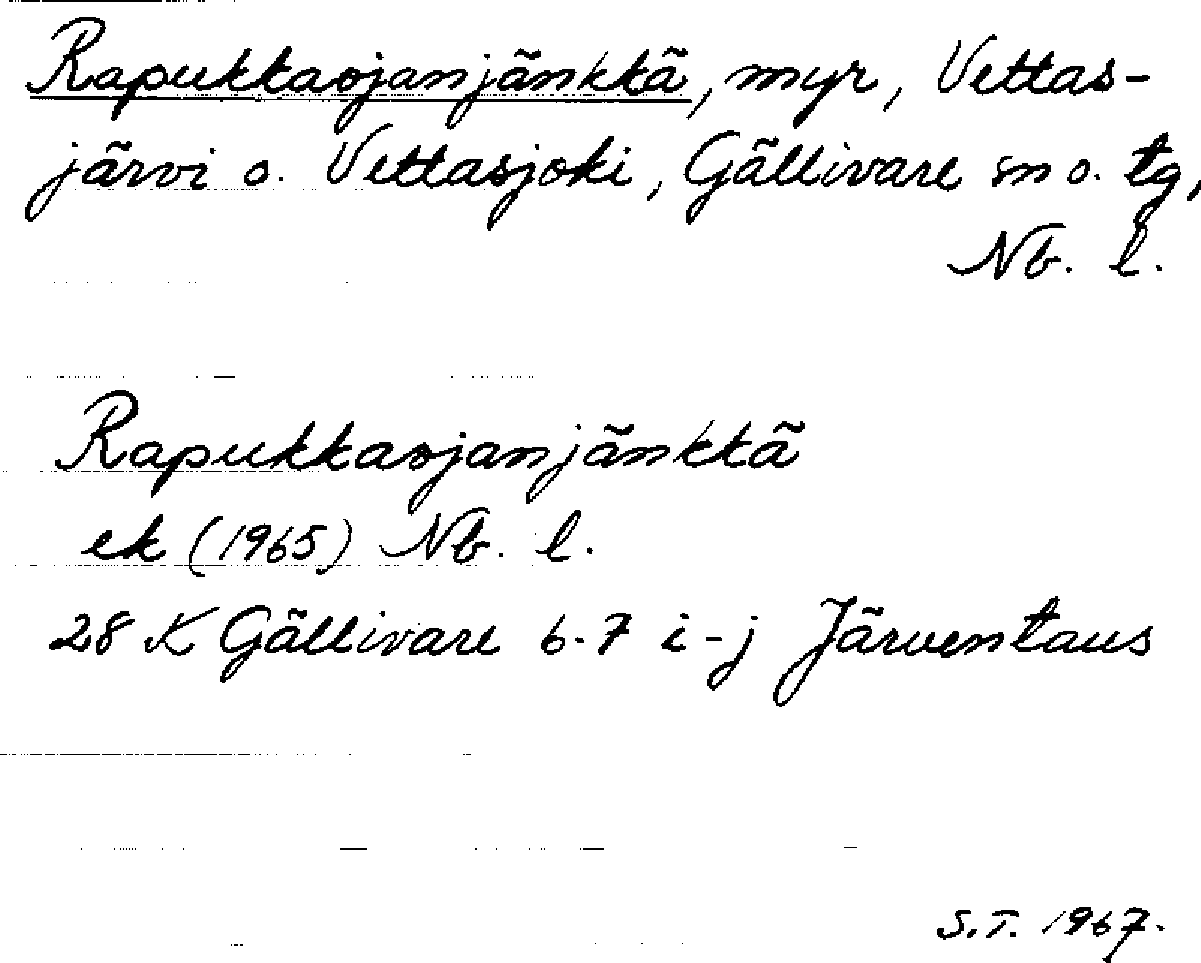 Rapukkaojanjänkkä, myr, Vettas-
järvi o. Vettasjoki, Gällivare sn o. tg,
Nb. l.
Rapukkaojanjänkkä
ek (1965) Nb. l.
28 K Gällivare 6-7 i-j Järventaus
S.T. 1967.